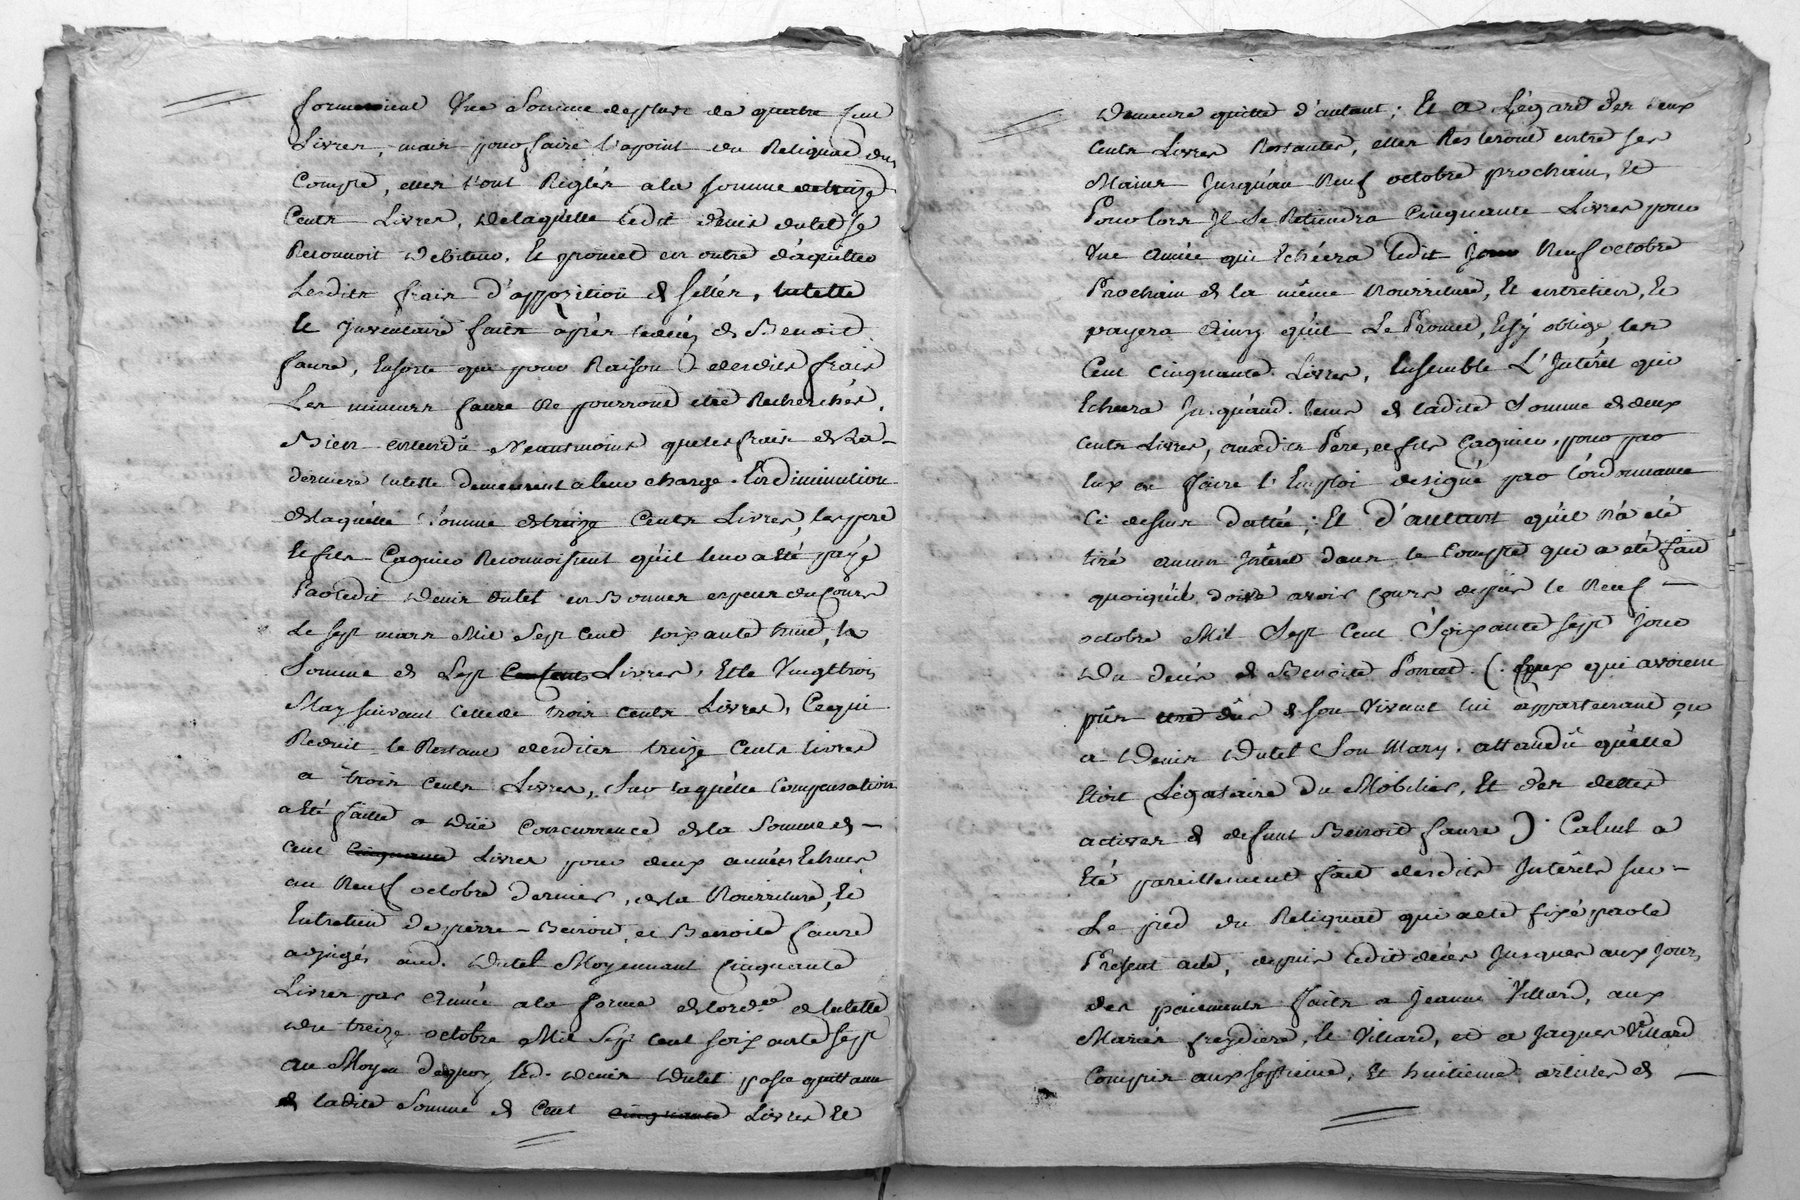 formeroient Une Somme desplus de quatre cent
Livres, mais pour faire l'apoint du Reliquat du
Compte, elles sont Réglés a la somme de treize
Cents Livres, de laquelle ledit Denis Dutel se
Reconnoit Debiteur. Et promet en outre d'aquitter
Lesdits frais d'apposition de scellés, tutelle
Et Inventaire faits après le décès de Benoit
faure, Ensorte que pour Raison desdits frais
Les mineurs faure Ne pourront être Recherchés.
Bien entendû Néantmoins que les frais de La
derniere tutelle demeurent a leur charge. En diminution
de laquelle somme de treize Cents Livres, les pere
Et fils Cagnieu Reconnoissent qu'il leur a été payé
Par ledit Denis Dutel en Bonnes especes du Cours
Le sept mars Mil Sept Cent soixante huit, la
Somme de Sept Livres, Et le Vingt trois
May suivant Celle de trois Cents Livres, Ce qui
Reduit le Restant desdites treize Cents livres
a trois Cents Livres, Sur laquelle Compensation
a été faitte a Düe Concurrence de la Somme de
Cent Cinquante Livres pour deux années Echues
au Neuf octobre dernier, de la Nourriture, Et
Entretien de pierre Benoit, et Benoite faure
adjugés aud. Dutel Moyennant Cinquante
Livres par année a la forme de l'ord.ce de tutelle
du treize octobre Mil Sept Cent soixante sept
au Moyen de quoy led. Denis Dutel passe quittance
de ladite Somme de Cent Cinquante Livres Et
Demeure quitte d'autant; Et a L'égard des deux
Cents Livres Restantes, elles Resteront entre ses
Mains Jusqu'au Neuf octobre prochain, Et
Pour lors Il se Retiendra Cinquante Livres pour
Une année qui Echéera ledit Jour Neuf octobre
Prochain de la même Nourriture, Et entretien, Et
payera ainsy qu'il Le Promet, Et s'y oblige, les
Cent Cinquante Livres, Ensemble L'Intérêt qui
Echeera Jusqu'aud. tems de ladite Somme de deux
Cents Livres, auxdits Pere, et fils Cagnieu, pour par
Eux en faire l'Emploi designé par l'ordonnance
Ci dessus dattée; Et d'autant qu'il N'a été
tiré aucun Intérêt dans le Compte qui a été fait
quoiqu'il doive avoir Cours depuis le Neuf
octobre Mil Sept Cent Soixante sept Jour
du décès de Benoite Poncet (. qui avoient
pûs de son Vivant lui appartenant ou
a Denis Dutel Son Mary. attandû qu'elle
Etoit Légataire du Mobilier, Et des dettes
actives de defunt Benoit faure). Calcul a
Eté pareillement fait desdits Intérêts sur
Le pied du Reliquat qui a été fixé par le
Present acte, depuis ledit décès Jusques aux Jours
des paiements faits a Jeanne Villard, aux
Mariés freydiere, Et Villard, et a Jaques Villard
Compris aux septieme, Et huitieme articles de